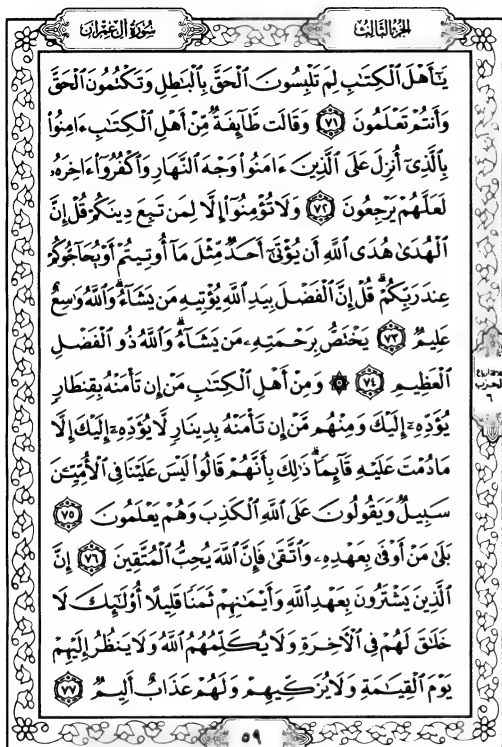 الجزء الثالث
سورة آل عمران
يَٰٓأَهْلَ ٱلْكِتَٰبِ لِمَ تَلْبِسُونَ ٱلْحَقَّ بِٱلْبَٰطِلِ وَتَكْتُمُونَ ٱلْحَقَّ
وَأَنتُمْ تَعْلَمُونَ ﴿٧١﴾ وَقَالَت طَّآئِفَةٌ مِّنْ أَهْلِ ٱلْكِتَٰبِ ءَامِنُوا۟
بِٱلَّذِىٓ أُنزِلَ عَلَى ٱلَّذِينَ ءَامَنُوا۟ وَجْهَ ٱلنَّهَارِ وَٱكْفُرُوٓا۟ ءَاخِرَهُۥ
لَعَلَّهُمْ يَرْجِعُونَ ﴿٧٢﴾ وَلَا تُؤْمِنُوٓا۟ إِلَّا لِمَن تَبِعَ دِينَكُمْ قُلْ إِنَّ
ٱلْهُدَىٰ هُدَى ٱللَّهِ أَن يُؤْتَىٰٓ أَحَدٌ مِّثْلَ مَآ أُوتِيتُمْ أَوْ يُحَآجُّوكُمْ
عِندَ رَبِّكُمْ ۗ قُلْ إِنَّ ٱلْفَضْلَ بِيَدِ ٱللَّهِ يُؤْتِيهِ مَن يَشَآءُ ۗ وَٱللَّهُ وَٰسِعٌ
عَلِيمٌ ﴿٧٣﴾ يَخْتَصُّ بِرَحْمَتِهِۦ مَن يَشَآءُ ۗ وَٱللَّهُ ذُو ٱلْفَضْلِ
ٱلْعَظِيمِ ﴿٧٤﴾ ۞ وَمِنْ أَهْلِ ٱلْكِتَٰبِ مَنْ إِن تَأْمَنْهُ بِقِنطَارٍ
يُؤَدِّهِۦٓ إِلَيْكَ وَمِنْهُم مَّنْ إِن تَأْمَنْهُ بِدِينَارٍ لَّا يُؤَدِّهِۦٓ إِلَيْكَ إِلَّا
مَا دُمْتَ عَلَيْهِ قَآئِمًا ۗ ذَٰلِكَ بِأَنَّهُمْ قَالُوا۟ لَيْسَ عَلَيْنَا فِى ٱلْأُمِّيِّـۧنَ
سَبِيلٌ وَيَقُولُونَ عَلَى ٱللَّهِ ٱلْكَذِبَ وَهُمْ يَعْلَمُونَ ﴿٧٥﴾
بَلَىٰ مَنْ أَوْفَىٰ بِعَهْدِهِۦ وَٱتَّقَىٰ فَإِنَّ ٱللَّهَ يُحِبُّ ٱلْمُتَّقِينَ ﴿٧٦﴾ إِنَّ
ٱلَّذِينَ يَشْتَرُونَ بِعَهْدِ ٱللَّهِ وَأَيْمَٰنِهِمْ ثَمَنًا قَلِيلًا أُو۟لَٰٓئِكَ لَا
خَلَٰقَ لَهُمْ فِى ٱلْءَاخِرَةِ وَلَا يُكَلِّمُهُمُ ٱللَّهُ وَلَا يَنظُرُ إِلَيْهِمْ
يَوْمَ ٱلْقِيَٰمَةِ وَلَا يُزَكِّيهِمْ وَلَهُمْ عَذَابٌ أَلِيمٌ ﴿٧٧﴾
الحزب
٦
٥٩